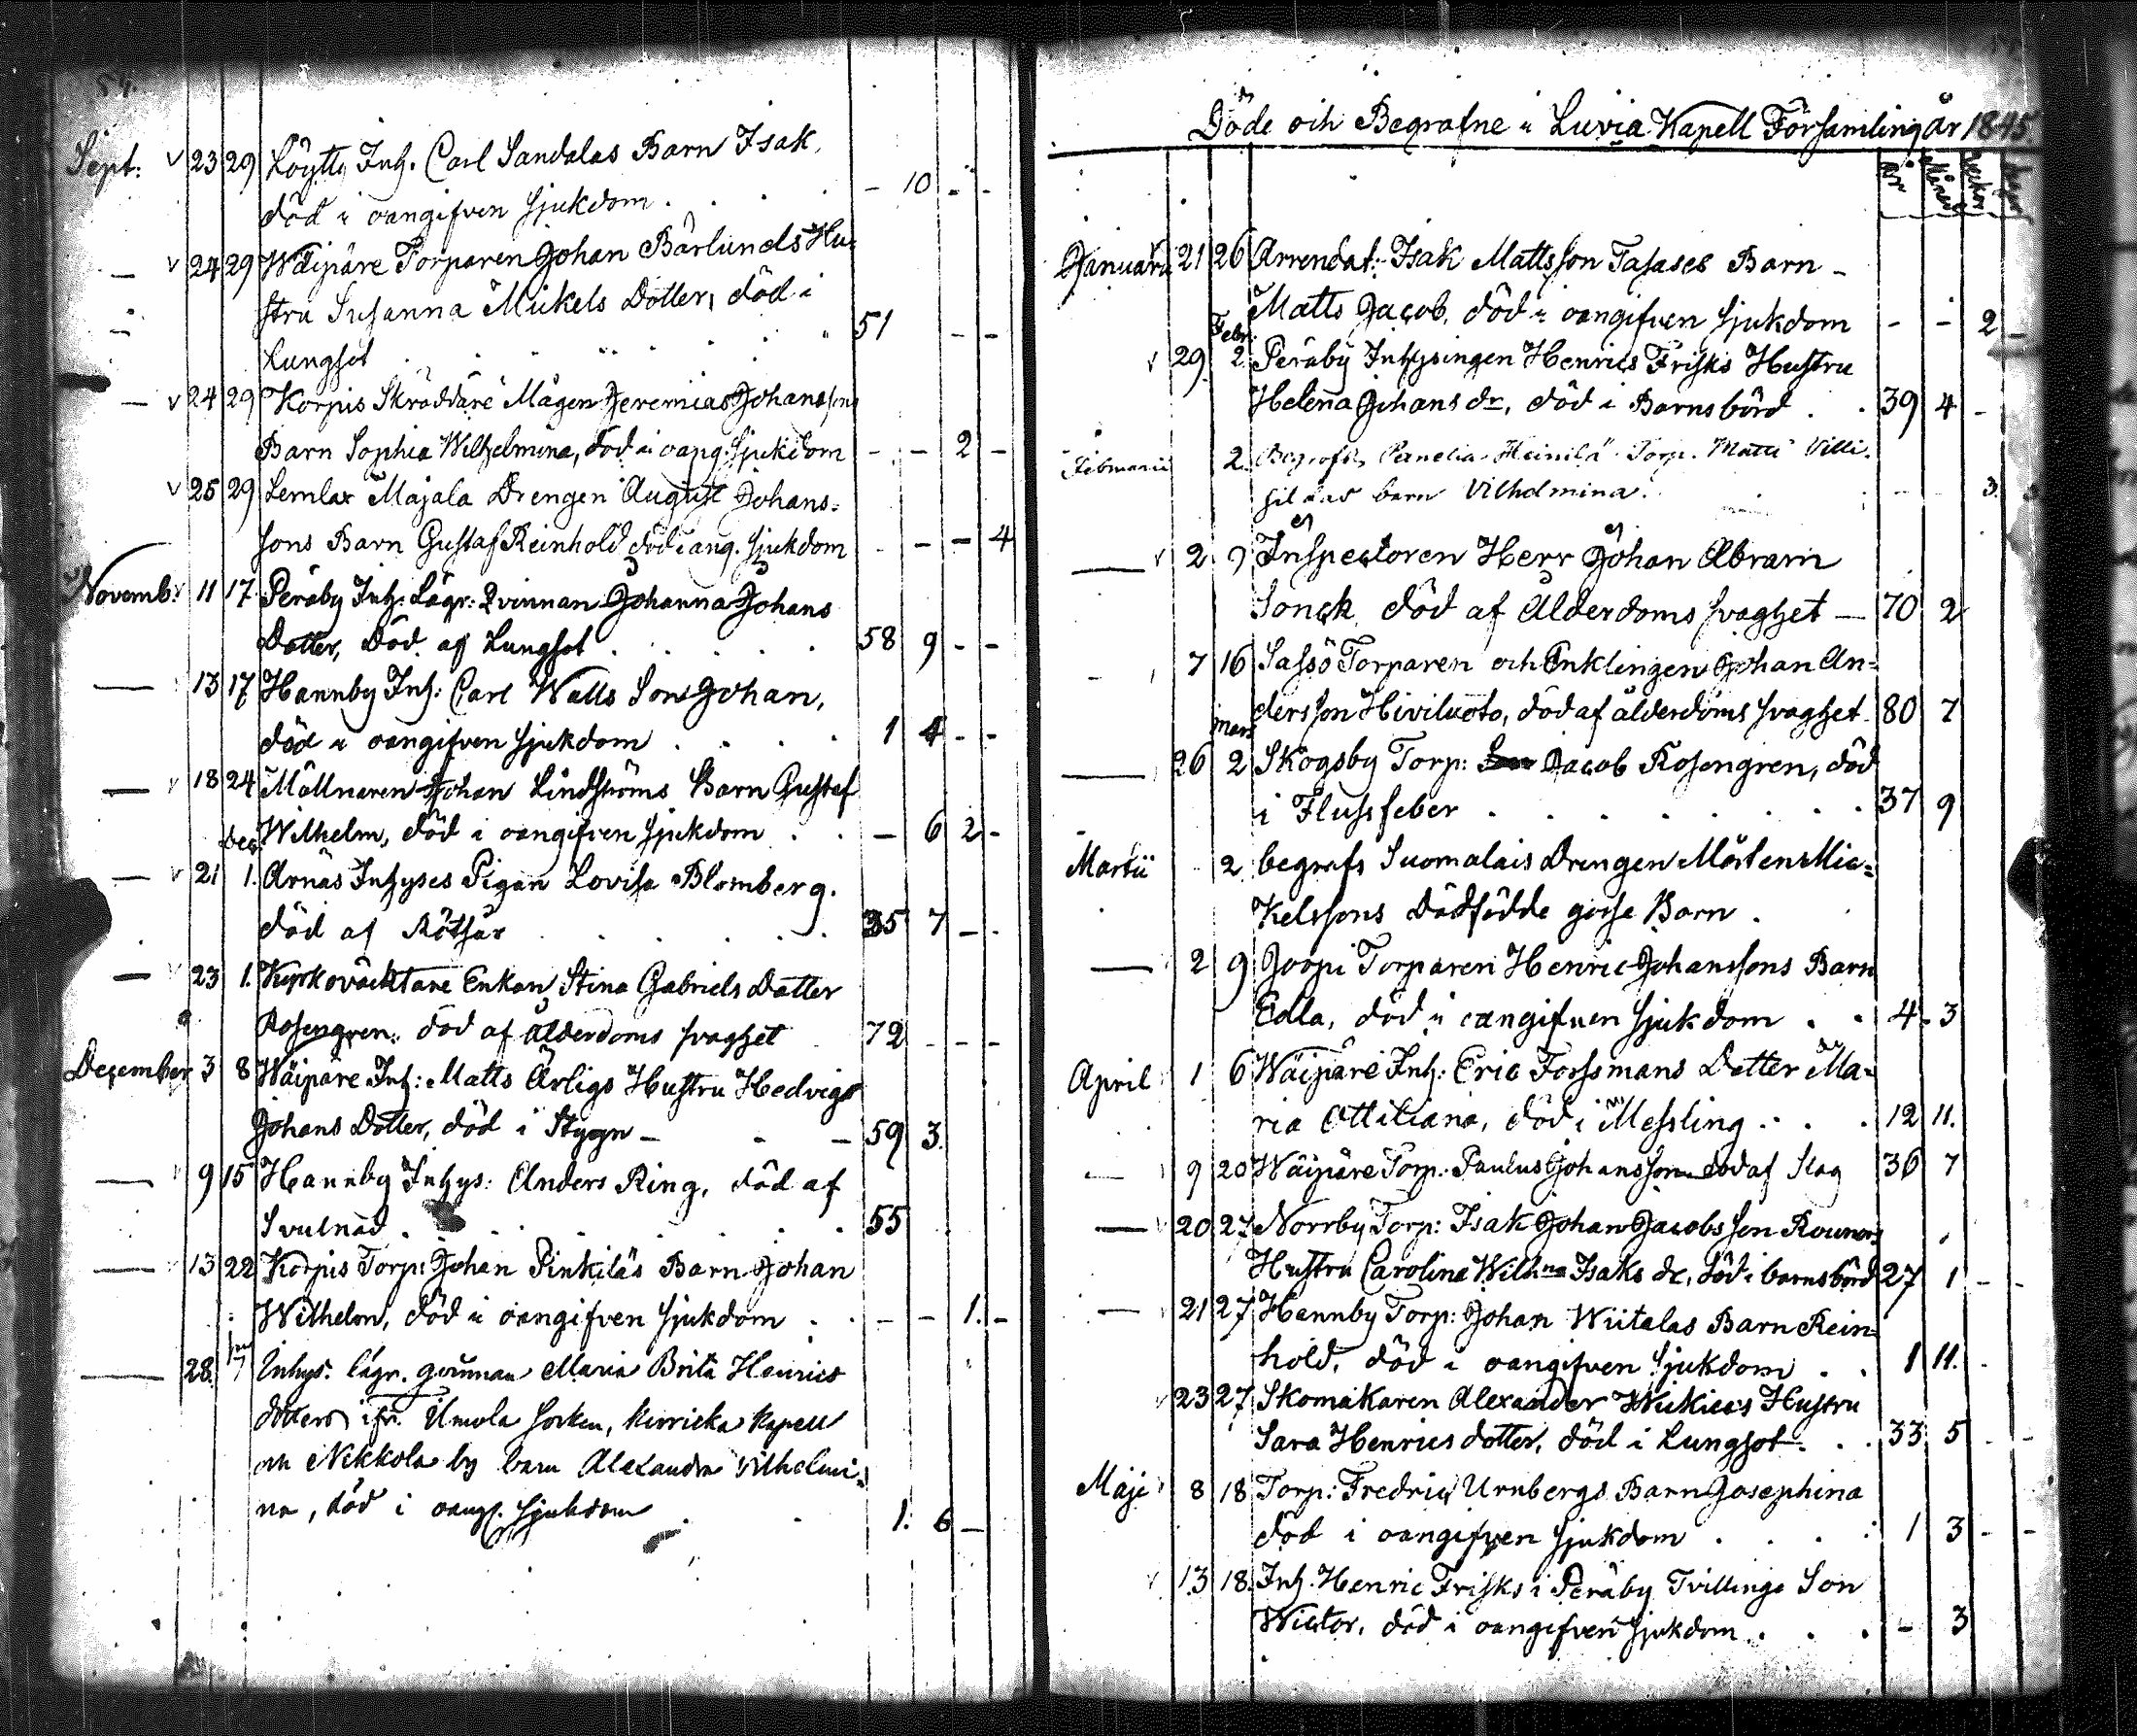 54.
Sept: v 23 29 Löytty Inh. Carl Sandalas Barn Isak,
död i oangifven sjukdom . . . - 10 - -
— v 24 29 Wäipäre Torparen Johan Bärlunds Hu-
stru Susanna Mickels Dotter, död i
Lungsot . . . . . 51 - -
— v 24 29 Korpis Skräddare Mågen Jeremias Johanssons
Barn Sophia Wilhelmina, död i oang. sjukdom - - 2 -
v 25 29 Lemlax Majala Drengen August Johans-
sons Barn Gustaf Reinhold död i ang. sjukdom - - - 4
Novemb: v 11 17 Peräby Inh: Lägr: Qvinnan Johanna Johans
Dotter, Död af Lungsot . . . . . 58 9 - -
— 13 17 Hannby Inh: Carl Walls Son Johan,
död i oangifven sjukdom . . . . 1 4 - -
— v 18 24 Möllnaren Johan Lindströms Barn Gustaf
Wilhelm, död i oangifven sjukdom . . - 6 2 -
Dec.
— v 21 1. Arnäs Inhyses Pigan Lovisa Blomberg.
död af Rötsår . . . . . 35 7 - -
— v 23 1. Kyrkoväcktare Enkan Stina Gabriels Dotter
Rosengren, död af Ålderdoms svaghet 72 - - -
December 3 8 Wäipäre Inh: Matts Ärligs Hustru Hedvig
Johans Dotter, död i Stygn - - - 59 3.
— v 9 15 Hannby Inhys: Anders Ring, död af
Svulnad . . . . . . 55
— v 13 22 Korpis Torp: Johan Pinkiläs Barn Johan
Wilhelm, död i oangifven sjukdom . . - - 1. -
— 28. 7 Inhys. lägr. qvinnan Maria Brita Henrics
dotters ifr. Ulmola socken, Kapell
och Nekkola by barn Alexandra Vilhelmi-
na, död i oangf. sjukdom . . 1. 6 -
Döde och Begrafne i Luvia Kapell Församling År 1845.
År Månad Veckor Dagar
Januarii 21 26 Arrendat: Isak Mattsson Tasases Barn -
Matts Jacob, död i oangifven sjukdom - - 2 -
Febr.
v 29 2 Peräby Inhysingen Henrics Frisks Hustru
Helena Johans dr, död i Barnsbörd . . 39 4 -
Februarii 2. Begrofs, Panelia Heinilä Torp. Matts Villi.
barn Vilhelmina. - 3.
— v 2 9 Inspectoren Herr Johan Abram
Sonck död af Ålderdoms svaghet — 70 2
- 7 16 Sassö Torparen och Enklingen Johan An-
dersson Hiviluoto, död af ålderdoms svaghet 80 7
Mars
— 26 2 Skogsby Torp: Jacob Rosengren, död
i Flussfeber . . . . . . . 37 9
Martii 2 begrofs Suomalais Drengen Mårten Mic-
kelssons Dödfödde gosse Barn .
— 2 9 Joopi Torparen Henric Johanssons Barn
Edla, död i oangifven sjukdom . . 4 3
April 1 6 Wäipäre Inh: Eric Forssmans Dotter Ma-
ria Ottiliana, död i Messling . . . 12 11.
— 9 20 Wäipäre Torp: Paulus Johansson död af Slag 36 7
— v 20 27 Norrby Torp: Isak Johan Jacobsson
Hustru Carolina Wilhna Isaks dr, död i barnsbörd 27 1 - -
— v 21 27 Hannby Torp: Johan Wiitalas Barn Rein-
hold, död i oangifven sjukdom . . 1 11. -
v 23 27 Skomakaren Alexander Wickiers Hustru
Sara Henrics dotter, död i Lungsot . . 33 5 - -
Maji 8 18 Torp: Fredric Urnbergs Barn Josephina
död i oangifven sjukdom . . . 1 3 - -
v 13 18. Inh. Henric Frisks i Peräby Tvillinge Son
Wictor, död i oangifven sjukdom . . . - 3